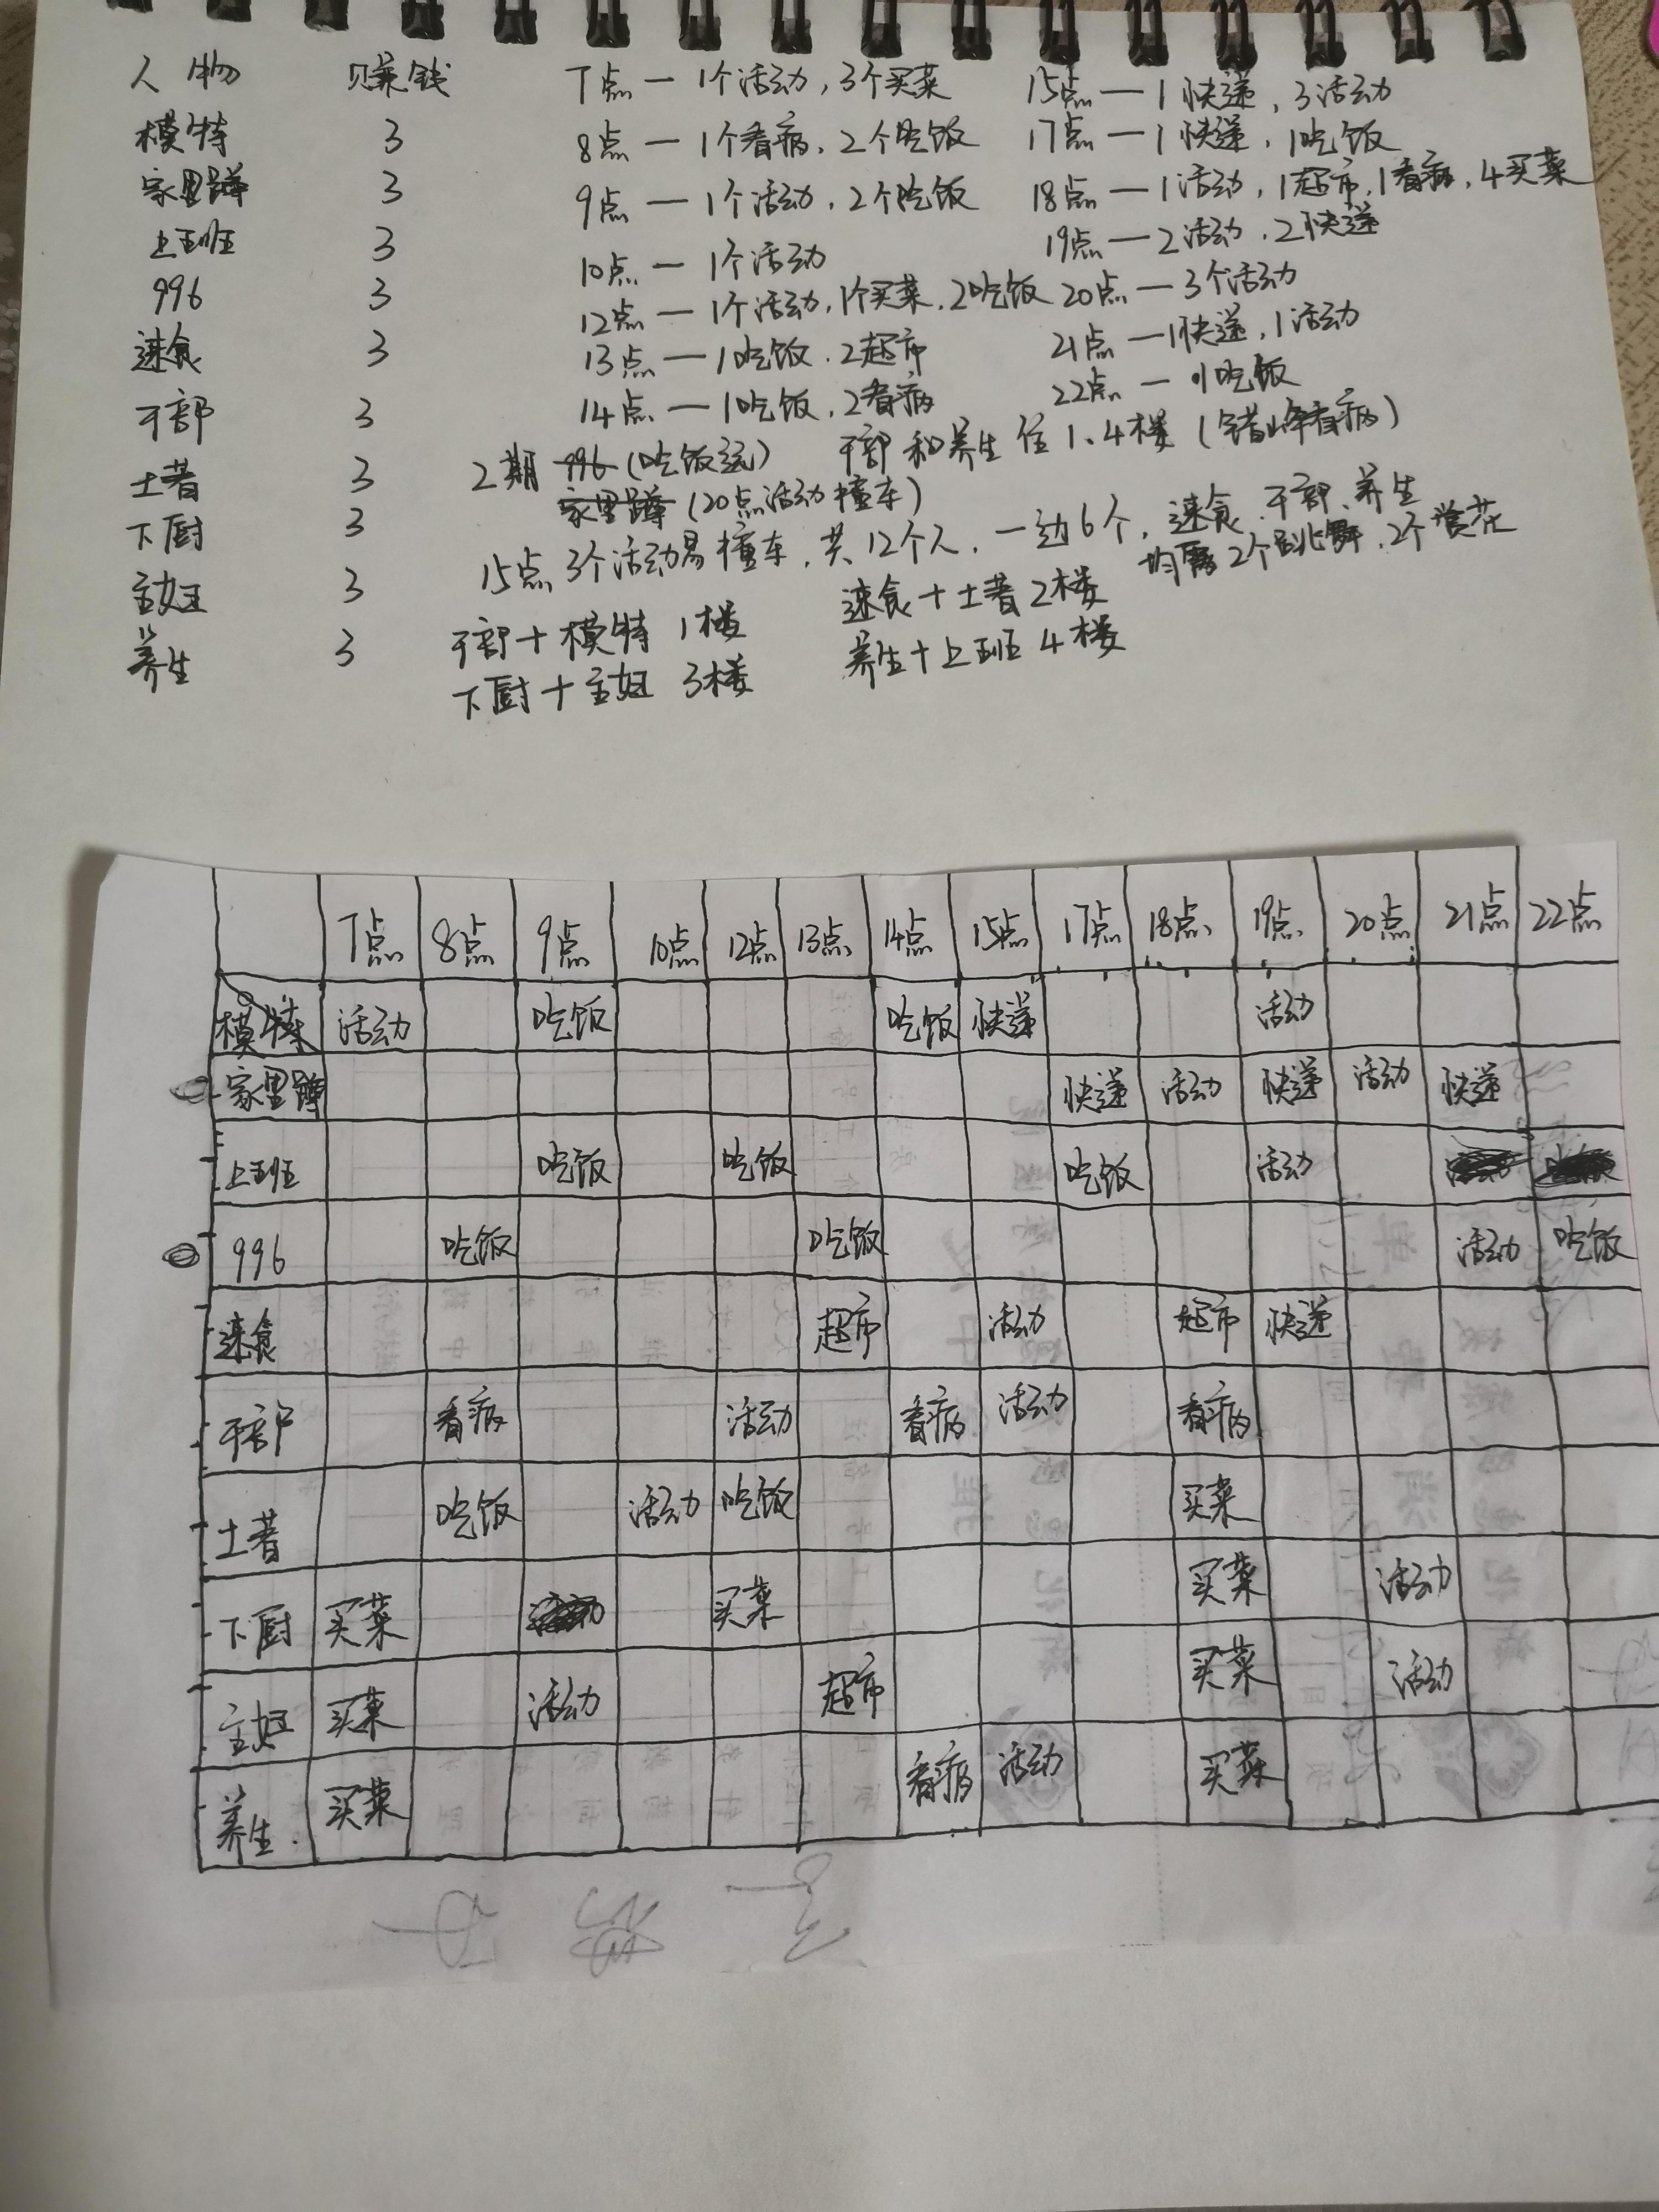 人物 赚钱 7点 — 1个活动，3个买菜 15点 — 1快递，3活动
模特 3 8点 — 1个看病，2个吃饭 17点 — 1快递，1吃饭
家里蹲 3 9点 — 1个活动，2个吃饭 18点 — 1活动，1超市，1看病，4买菜
上班 3 10点 — 1个活动 19点 — 2活动，2快递
996 3 12点 — 1个活动，1个买菜，2吃饭 20点 — 3个活动
速食 3 13点 — 1吃饭，2超市 21点 — 1快递，1活动
干部 3 14点 — 1吃饭，2看病 22点 — 1吃饭
土著 3 2期 996（吃饭远） 干部和养生住1、4楼（错峰看病）
下厨 3 家里蹲（20点活动撞车）
主妇 3 15点3个活动易撞车，共12个人，一边6个，速食、干部、养生
均需2个跳舞，2个赏花
养生 3 干部+模特 1楼 速食+土著 2楼
下厨+主妇 3楼 养生+上班 4楼
7点 8点 9点 10点 12点 13点 14点 15点 17点 18点 19点 20点 21点 22点
模特 活动 吃饭 吃饭 快递 活动
家里蹲 快递 活动 快递 活动 快递
上班 吃饭 吃饭 吃饭 活动
996 吃饭 吃饭 活动 吃饭
速食 超市 活动 超市 快递
干部 看病 活动 看病 活动 看病
土著 吃饭 活动 吃饭 买菜
下厨 买菜 买菜 买菜 活动
主妇 买菜 活动 超市 买菜 活动
养生 买菜 看病 活动 买菜